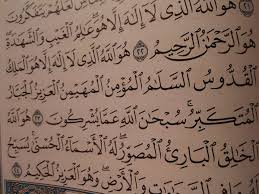 لَعَلَّهُمْ يَتَفَكَّرُونَ ٢١
هُوَ اللَّهُ الَّذِي لَا إِلَٰهَ إِلَّا هُوَ عَالِمُ الْغَيْبِ وَالشَّهَادَةِ
هُوَ الرَّحْمَٰنُ الرَّحِيمُ ٢٢ هُوَ اللَّهُ الَّذِي لَا إِلَٰهَ إِلَّا هُوَ الْمَلِكُ
الْقُدُّوسُ السَّلَامُ الْمُؤْمِنُ الْمُهَيْمِنُ الْعَزِيزُ الْجَبَّارُ
الْمُتَكَبِّرُ سُبْحَانَ اللَّهِ عَمَّا يُشْرِكُونَ ٢٣ هُوَ اللَّهُ
الْخَالِقُ الْبَارِئُ الْمُصَوِّرُ لَهُ الْأَسْمَاءُ الْحُسْنَىٰ يُسَبِّحُ
السَّمَاوَاتِ وَالْأَرْضِ وَهُوَ الْعَزِيزُ الْحَكِيمُ ٢٤